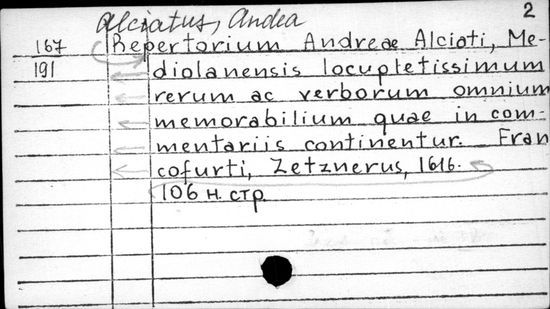 Alciatus, Andea 2
167 Repertorium Andreae Alciati, Me-
191 diolanensis locupletissimum
rerum ac verborum omnium
memorabilium quae in com-
mentariis continentur. Fran
cofurti, Zetznerus, 1616.
106 н. стр.